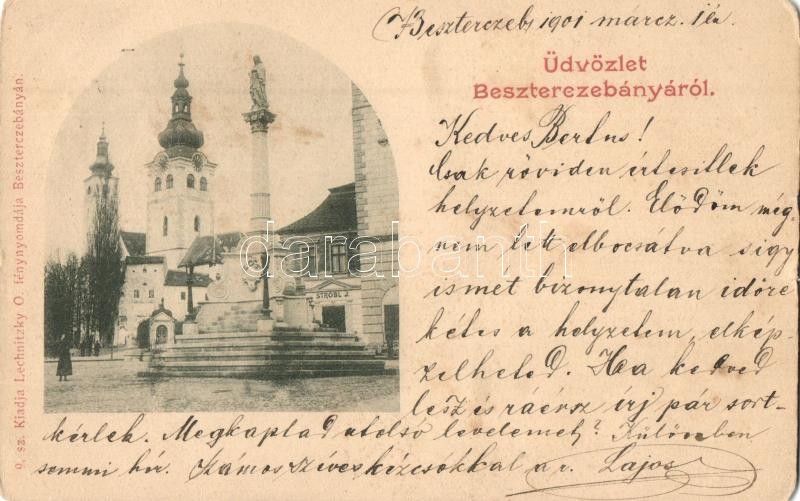 Beszterczeb, 1901 márcz. 1én
Üdvözlet
Beszterczebányáról.
Kedves Bertus!
Csak röviden értesitlek
helyzetemröl. Elödöm még
nem lett elbocsátva s igy
ismét bizonytalan időre
kétes a helyzetem, elkép-
zelheted. Ha kedved
lesz és ráérsz írj pár sort
kérlek. Megkaptad utolsó levelemet? Különben
semmi hír. Számos szives kézcsókkal a r. Lajos
STROBL J.
9. sz. Kiadja Lechnitzky O. fénynyomdája Beszterczebányán.
darabanth